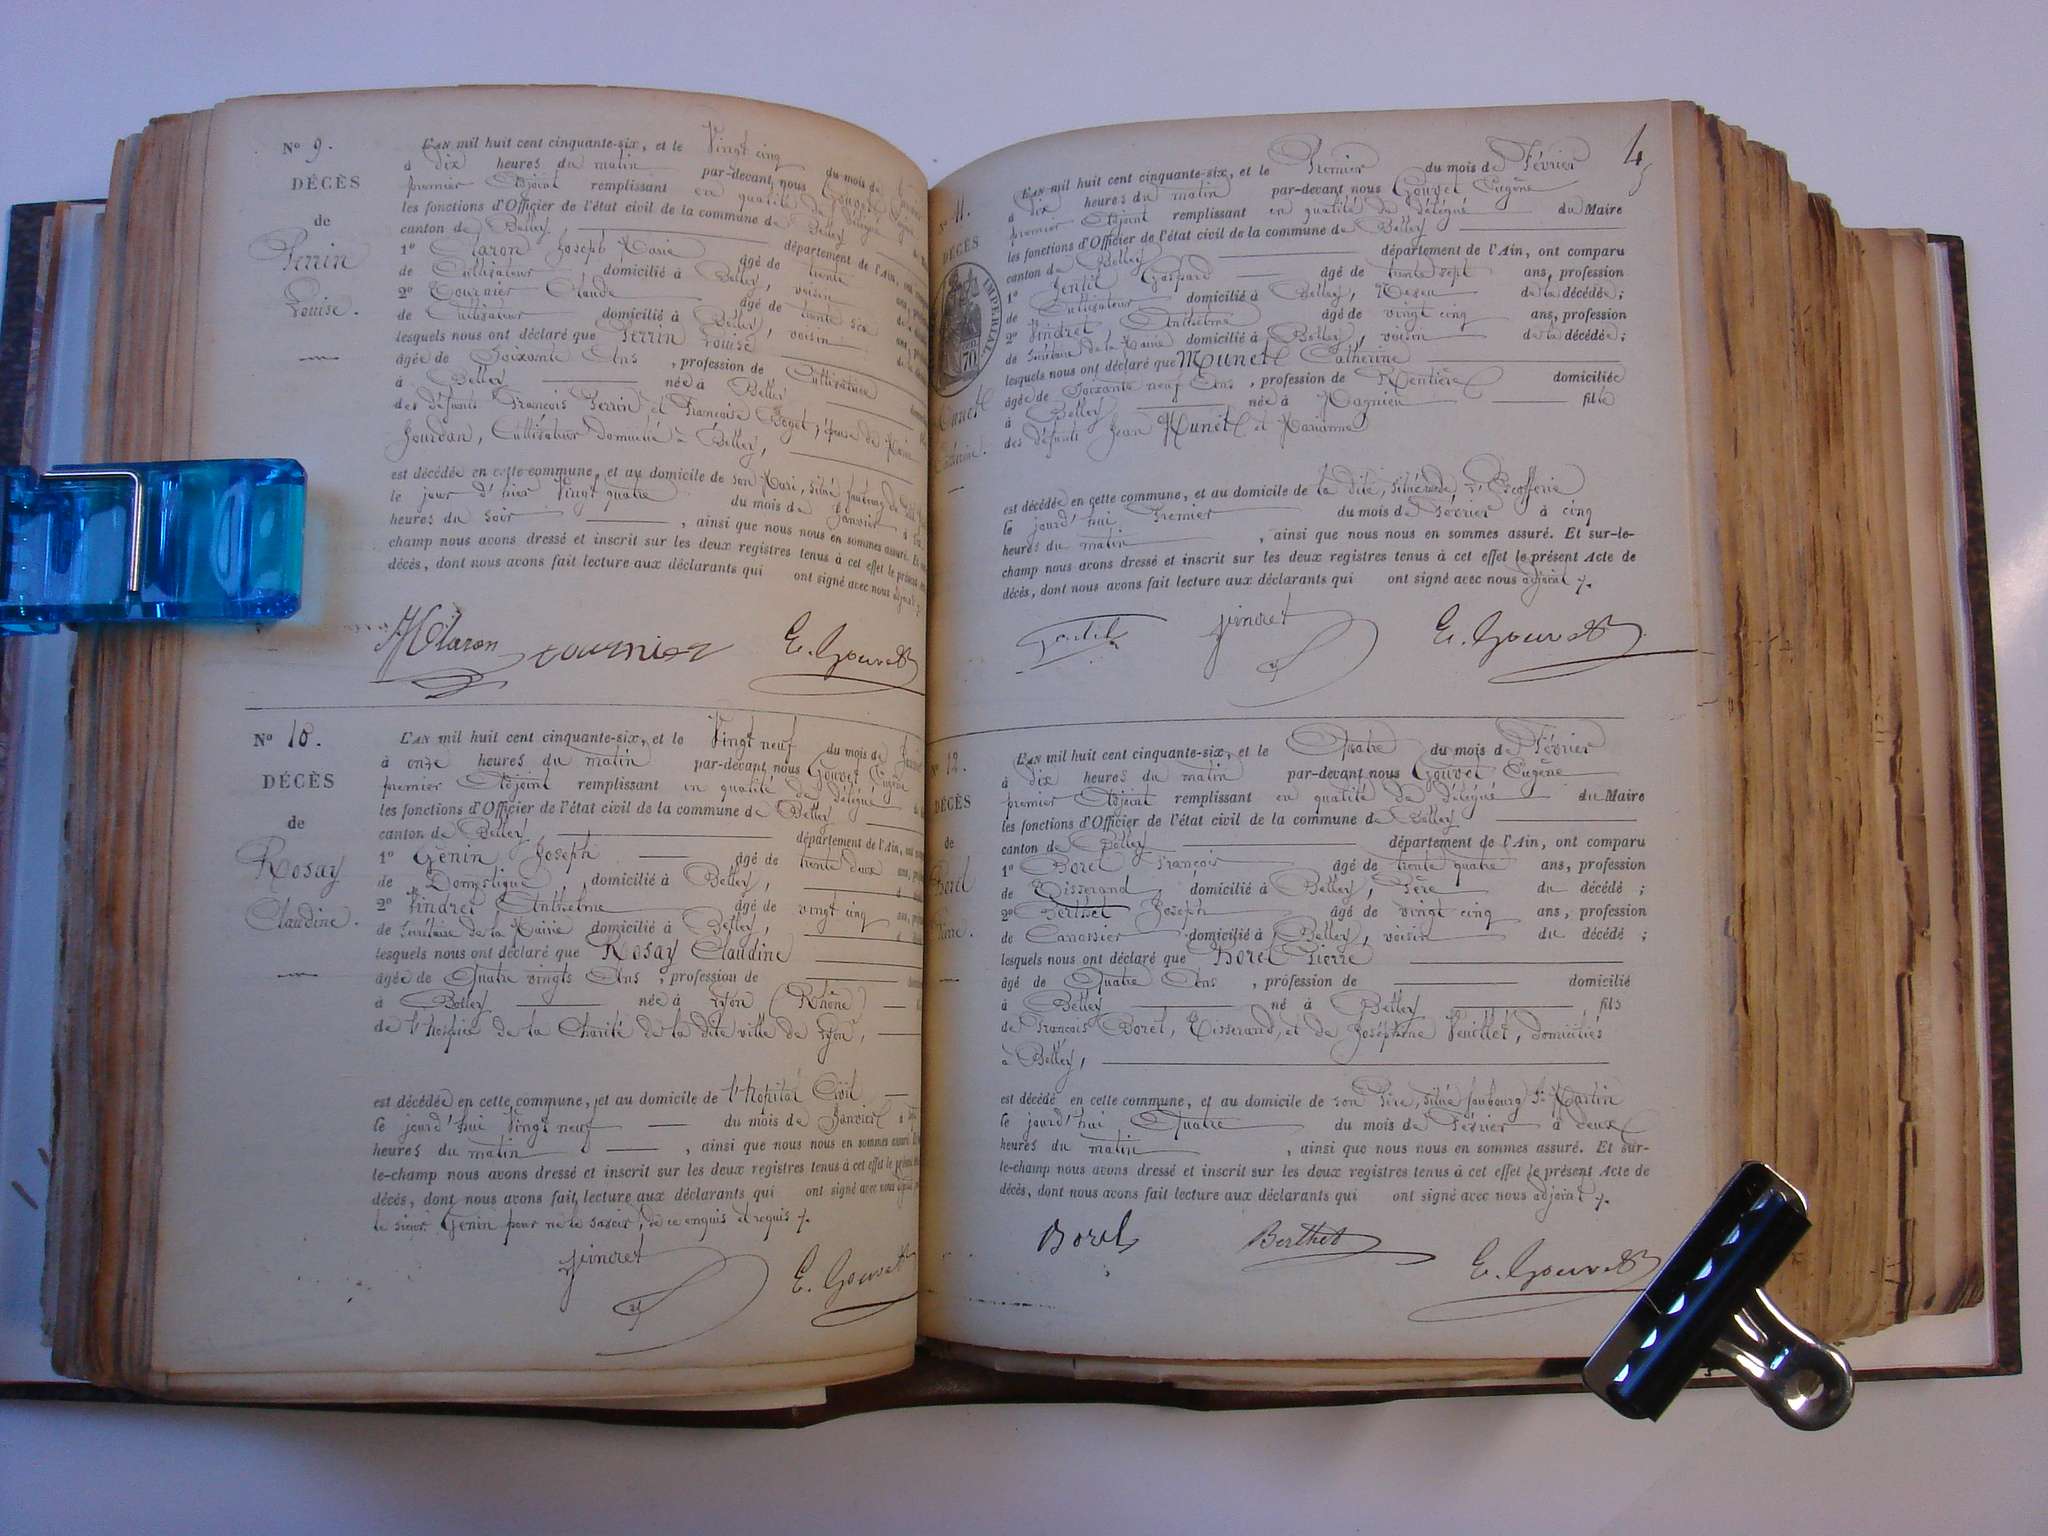 N° 9.
DÉCÈS
de
Perrin
Louise.
L'AN mil huit cent cinquante-six, et le Vingt cinq du mois de
à dix heures du matin par-devant nous Gouvet
premier Adjoint remplissant en qualité de délégué
les fonctions d'Officier de l'état civil de la commune de Belley
canton de Belley département de l'Ain,
1° Claron Joseph Marie âgé de trente
de Cultivateur domicilié à Belley, voisin
2° Tournier Claude âgé de trente six
de Cultivateur domicilié à Belley, voisin
lesquels nous ont déclaré que Perrin Louise
âgée de Soixante Ans, profession de Cultivatrice
à Belley née à Belley
des défunts François Perrin et Françoise Boget, épouse de
Jourdan, Cultivateur domicilié à Belley,
est décédée en cette commune, et au domicile de son Mari, situé faubourg de
le jour d'hier Vingt quatre du mois de Janvier à
heures du soir, ainsi que nous nous en sommes assuré. Et
champ nous avons dressé et inscrit sur les deux registres tenus à cet effet le présent
décès, dont nous avons fait lecture aux déclarants qui ont signé avec nous adjoint
Claron Tournier E. Gouvet
N° 10.
DÉCÈS
de
Rosay
Claudine.
L'AN mil huit cent cinquante-six, et le Vingt neuf du mois de
à onze heures du matin par-devant nous Gouvet Eugène
premier Adjoint remplissant en qualité de délégué
les fonctions d'Officier de l'état civil de la commune de Belley
canton de Belley département de l'Ain, ont
1° Génin Joseph âgé de trente deux ans,
de Domestique domicilié à Belley,
2° Vindret Anthelme âgé de vingt cinq ans,
de Secrétaire de la Mairie domicilié à Belley,
lesquels nous ont déclaré que Rosay Claudine
âgée de Quatre vingts Ans, profession de
à Belley née à Lyon (Rhône)
de l'hospice de la Charité de la dite ville de Lyon,
est décédée en cette commune, et au domicile de l'hôpital Civil.
le jourd'hui Vingt neuf du mois de Janvier à
heures du matin, ainsi que nous nous en sommes assuré. Et
le-champ nous avons dressé et inscrit sur les deux registres tenus à cet effet le présent
décès, dont nous avons fait lecture aux déclarants qui ont signé avec nous
le sieur Génin pour ne le savoir, de ce enquis et requis ./.
Vindret E. Gouvet
4
N° 11.
DÉCÈS
IMPERIAL
70
Munet
Catherine.
L'AN mil huit cent cinquante-six, et le Premier du mois de Février
à dix heures du matin par-devant nous Gouvet Eugène
premier Adjoint remplissant en qualité de délégué du Maire
les fonctions d'Officier de l'état civil de la commune de Belley
canton de Belley département de l'Ain, ont comparu
1° Jentil Gaspard âgé de trente sept ans, profession
de Cultivateur domicilié à Belley, Neveu de la décédée;
2° Vindret, Anthelme âgé de vingt cinq ans, profession
de Secrétaire de la Mairie domicilié à Belley, voisin de la décédée;
lesquels nous ont déclaré que Munet Catherine
âgée de Soixante neuf Ans, profession de Rentière domiciliée
à Belley née à Magnieu fille
des défunts Jean Munet et Marianne
est décédée en cette commune, et au domicile de la dite, situé rue de l'Escofferie
le jourd'hui Premier du mois de Février à cinq
heures du matin, ainsi que nous nous en sommes assuré. Et sur-le-
champ nous avons dressé et inscrit sur les deux registres tenus à cet effet le présent Acte de
décès, dont nous avons fait lecture aux déclarants qui ont signé avec nous adjoint ./.
Jentil Vindret E. Gouvet
N° 12.
DÉCÈS
de
Borel
Pierre.
L'AN mil huit cent cinquante-six, et le Quatre du mois de Février
à dix heures du matin par-devant nous Gouvet Eugène
premier Adjoint remplissant en qualité de délégué du Maire
les fonctions d'Officier de l'état civil de la commune de Belley
canton de Belley département de l'Ain, ont comparu
1° Borel François âgé de trente quatre ans, profession
de Tisserand, domicilié à Belley, Père du décédé ;
2° Berthet Joseph âgé de vingt cinq ans, profession
de domicilié à Belley, voisin du décédé ;
lesquels nous ont déclaré que Borel Pierre
âgé de Quatre Ans, profession de domicilié
à Belley né à Belley fils
de François Borel, Tisserand, et de Joséphine Veuillet, domiciliés
à Belley,
est décédé en cette commune, et au domicile de son Père, situé faubourg St. Martin
le jourd'hui Quatre du mois de Février à deux
heures du matin, ainsi que nous nous en sommes assuré. Et sur-
le-champ nous avons dressé et inscrit sur les deux registres tenus à cet effet le présent Acte de
décès, dont nous avons fait lecture aux déclarants qui ont signé avec nous adjoint ./.
Borel Berthet E. Gouvet